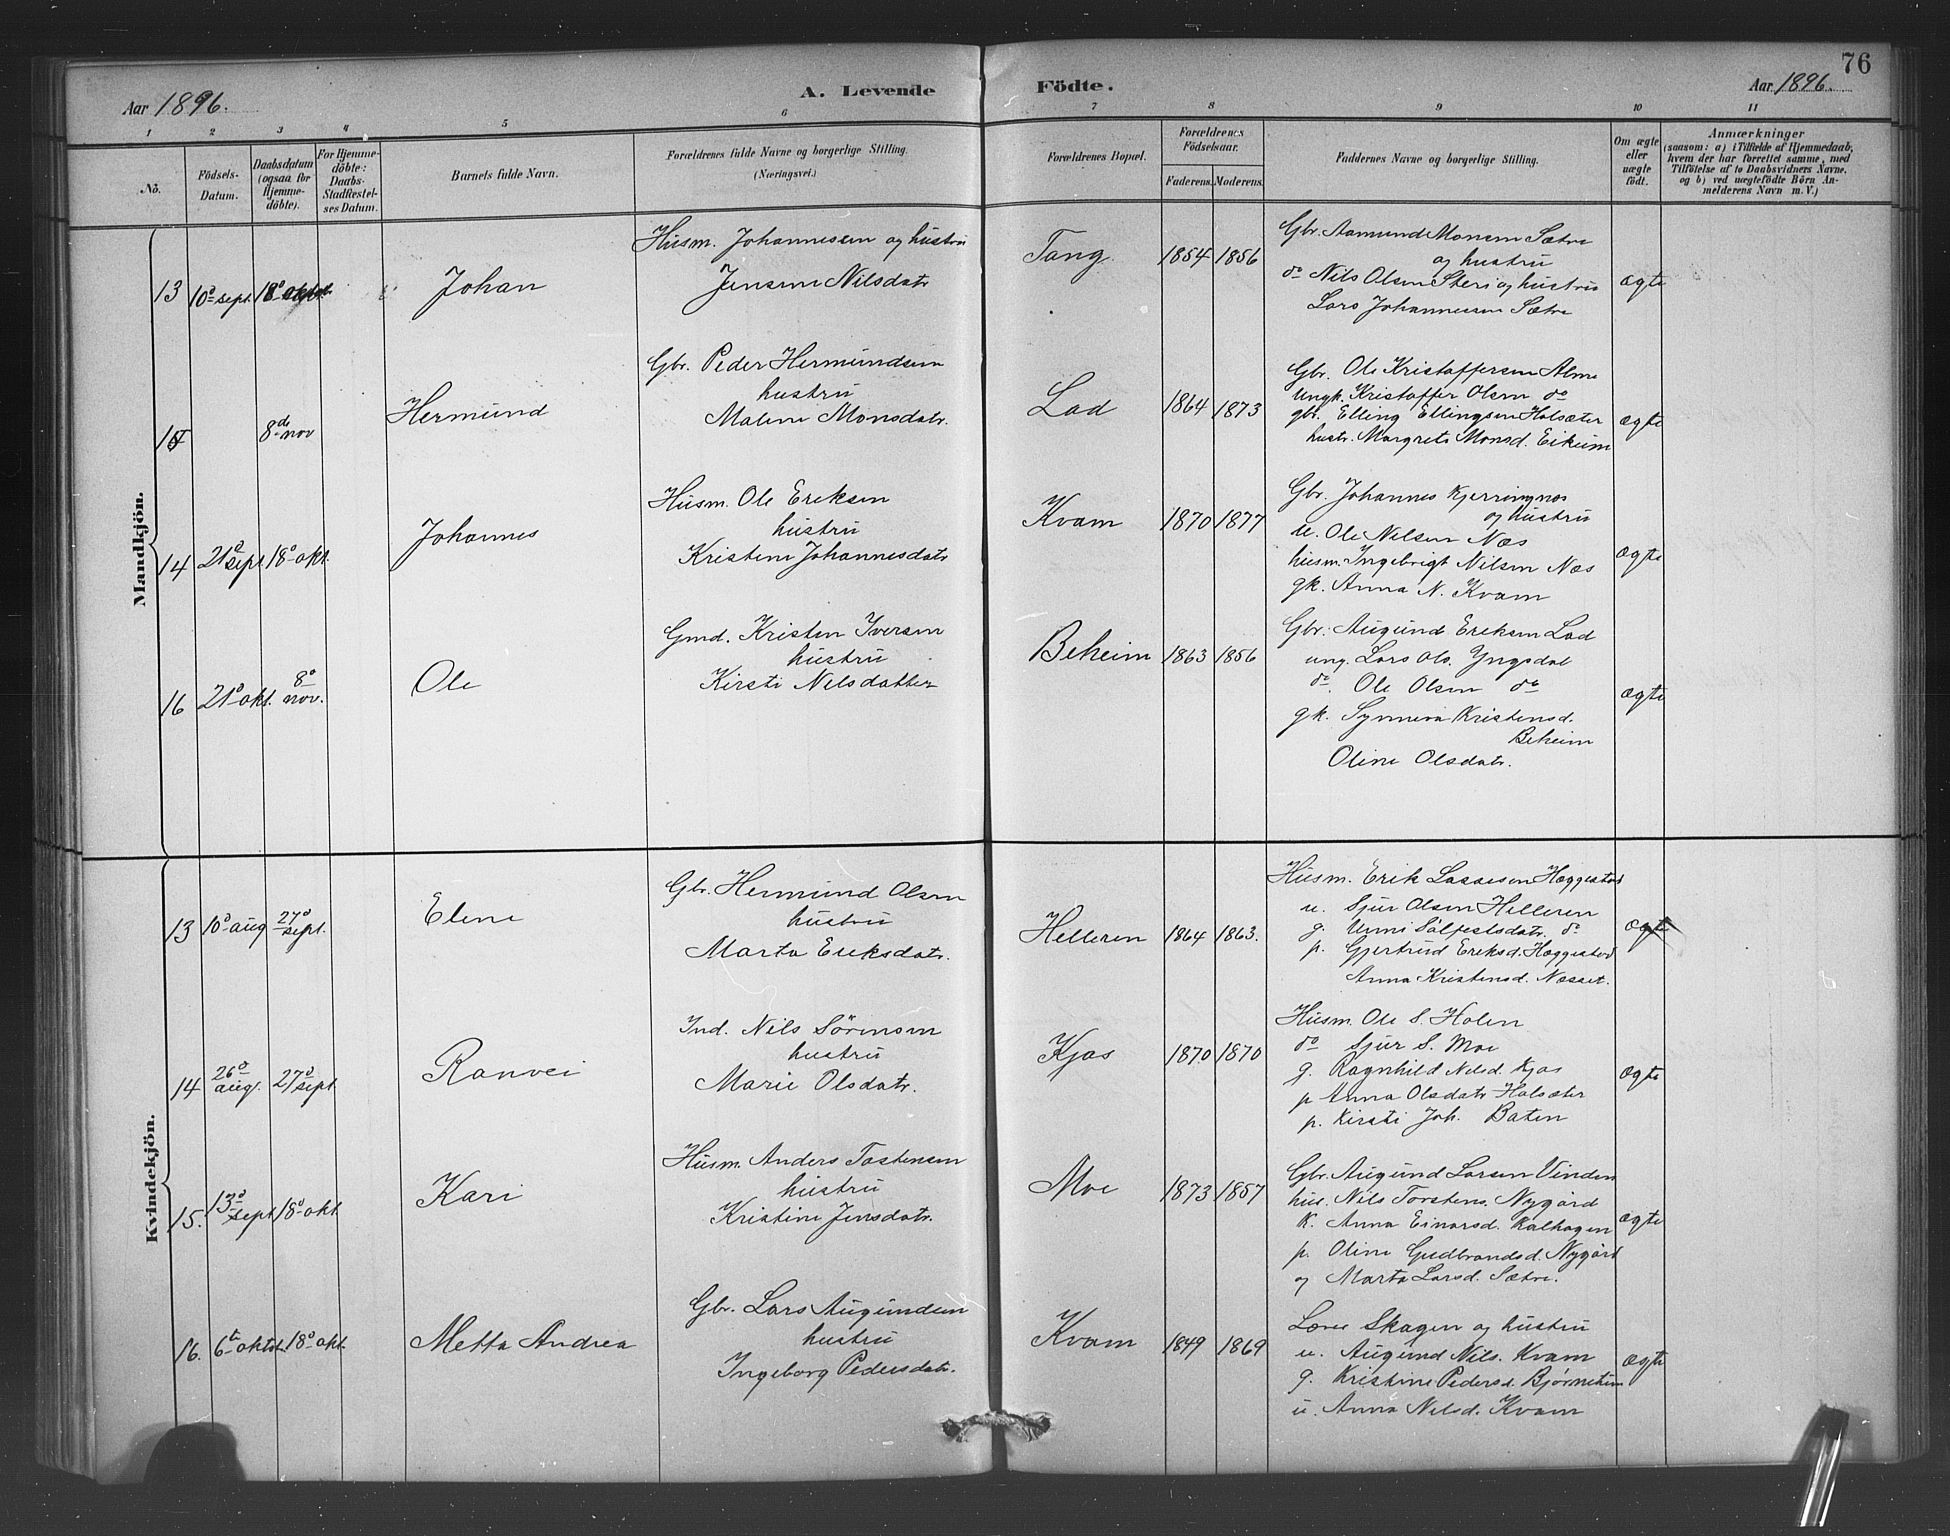 76
Aar 1896.
A. Levende Födte.
Aar 1896.
1 2 3 4 5 6 7 8 9 10 11
No.
Födsels-Datum.
Daabsdatum (ogsaa for Hjemme-döbte).
For Hjemme-döbte: Daabs-Stadfæstel-ses Datum.
Barnets fulde Navn.
Forældrenes fulde Navne og borgerlige Stilling.
(Næringsvei.)
Forældrenes Bopæl.
Forældrenes Födselsaar.
Faderens. Moderens.
Faddernes Navne og borgerlige Stilling.
Om ægte eller uægte födt.
Anmærkninger
(saasom: a) i Tilfælde af Hjemmedaab,
hvem der har forrettet samme, med
Tilföielse af to Daabsvidners Navne,
og b) ved uægtefödte Börn An-
melderens Navn m. V.)
Mandkjön.
13 10de sept. 18de Johan
Husm. Johannessen og hustru
Jensine Nilsdatr
Tang 1854 1856
Gbr. Aamund Monsen Sætre
og hustru
do Nils Olsen Steri og hustru
Lars Johannessen Sætre
ægte
8de nov Hermund
Gbr. Peder Hermundsen
hustru
Malene Monsdatr.
Lad 1864 1873
Gbr. Ole Kristoffersen Alme
Ungk. Kristoffer Olsen do
gbr. Elling Ellingsen Halsæter
hustr. Margrete Monsd. Eikum
ægte
14 21de sept. 18de okt. Johannes
Husm. Ole Eriksen
hustru
Kristine Johannesdatr
Kvam 1870 1877
Gbr. Johannes Kjerringnes
og hustru
u. Ole Nilsen Næs
husm. Ingebrigt Nilsen Næs
gk. Anna N. Kvam
ægte
16 21de okt. 8de nov. Ole
Gmd. Kristen Iversen
hustru
Kirsti Nilsdatter
Beheim 1863 1856
Gbr. Augund Eriksen Lad
ung. Lars Ols. Yngsdal
do. Ole Olsen do
gk. Synneva Kristensd.
Beheim
Oline Olsdatr.
ægte
Kvindekjön.
13 10de aug 27de sept. Elene
Gbr. Hermund Olsen
hustru
Marta Eriksdatr.
Helleren 1864 1863.
Husm. Erik Lassesen Hæggestad
u. Sjur Olsen Helleren
g. Unni Salfestsdatr. do
p. Gjertrud Eriksd. Hæggestad
Anna Kristensd. Næsset.
ægte
14 26de aug. 27de sept. Ranvei
Ind. Nils Sörensen
hustru
Marie Olsdatr.
Kjos 1870 1870
Husm. Ole S. Holen
do Sjur S. Moe
g. Ragnhild Nilsd. Kjos
p Anna Olsdatr Halsæter
p. Kirsti Joh. Baten
ægte
15. 13de sept. 18de okt. Kari
Husm. Anders Tostensen
hustru
Kristine Jensdatr.
Moe 1873 1857
Gbr. Augund Larsen Vinden
hus. Nils Torstens. Nygård
K. Anna Einarsd. Kalhagen
p. Oline Gudbrandsd. Nygård
og Marta Larsd. Sætre.
ægte
16. 6te oktob. 18de okt. Metta Andrea
Gbr. Lars Augundsen
hustru
Ingeborg Pedersdatr.
Kvam 1849 1869
Lærer Skagen og hustru
u. Augund Nils. Kvam
g. Kristine Pedersd. Bjørnetun
u. Anna Nilsd. Kvam
ægte